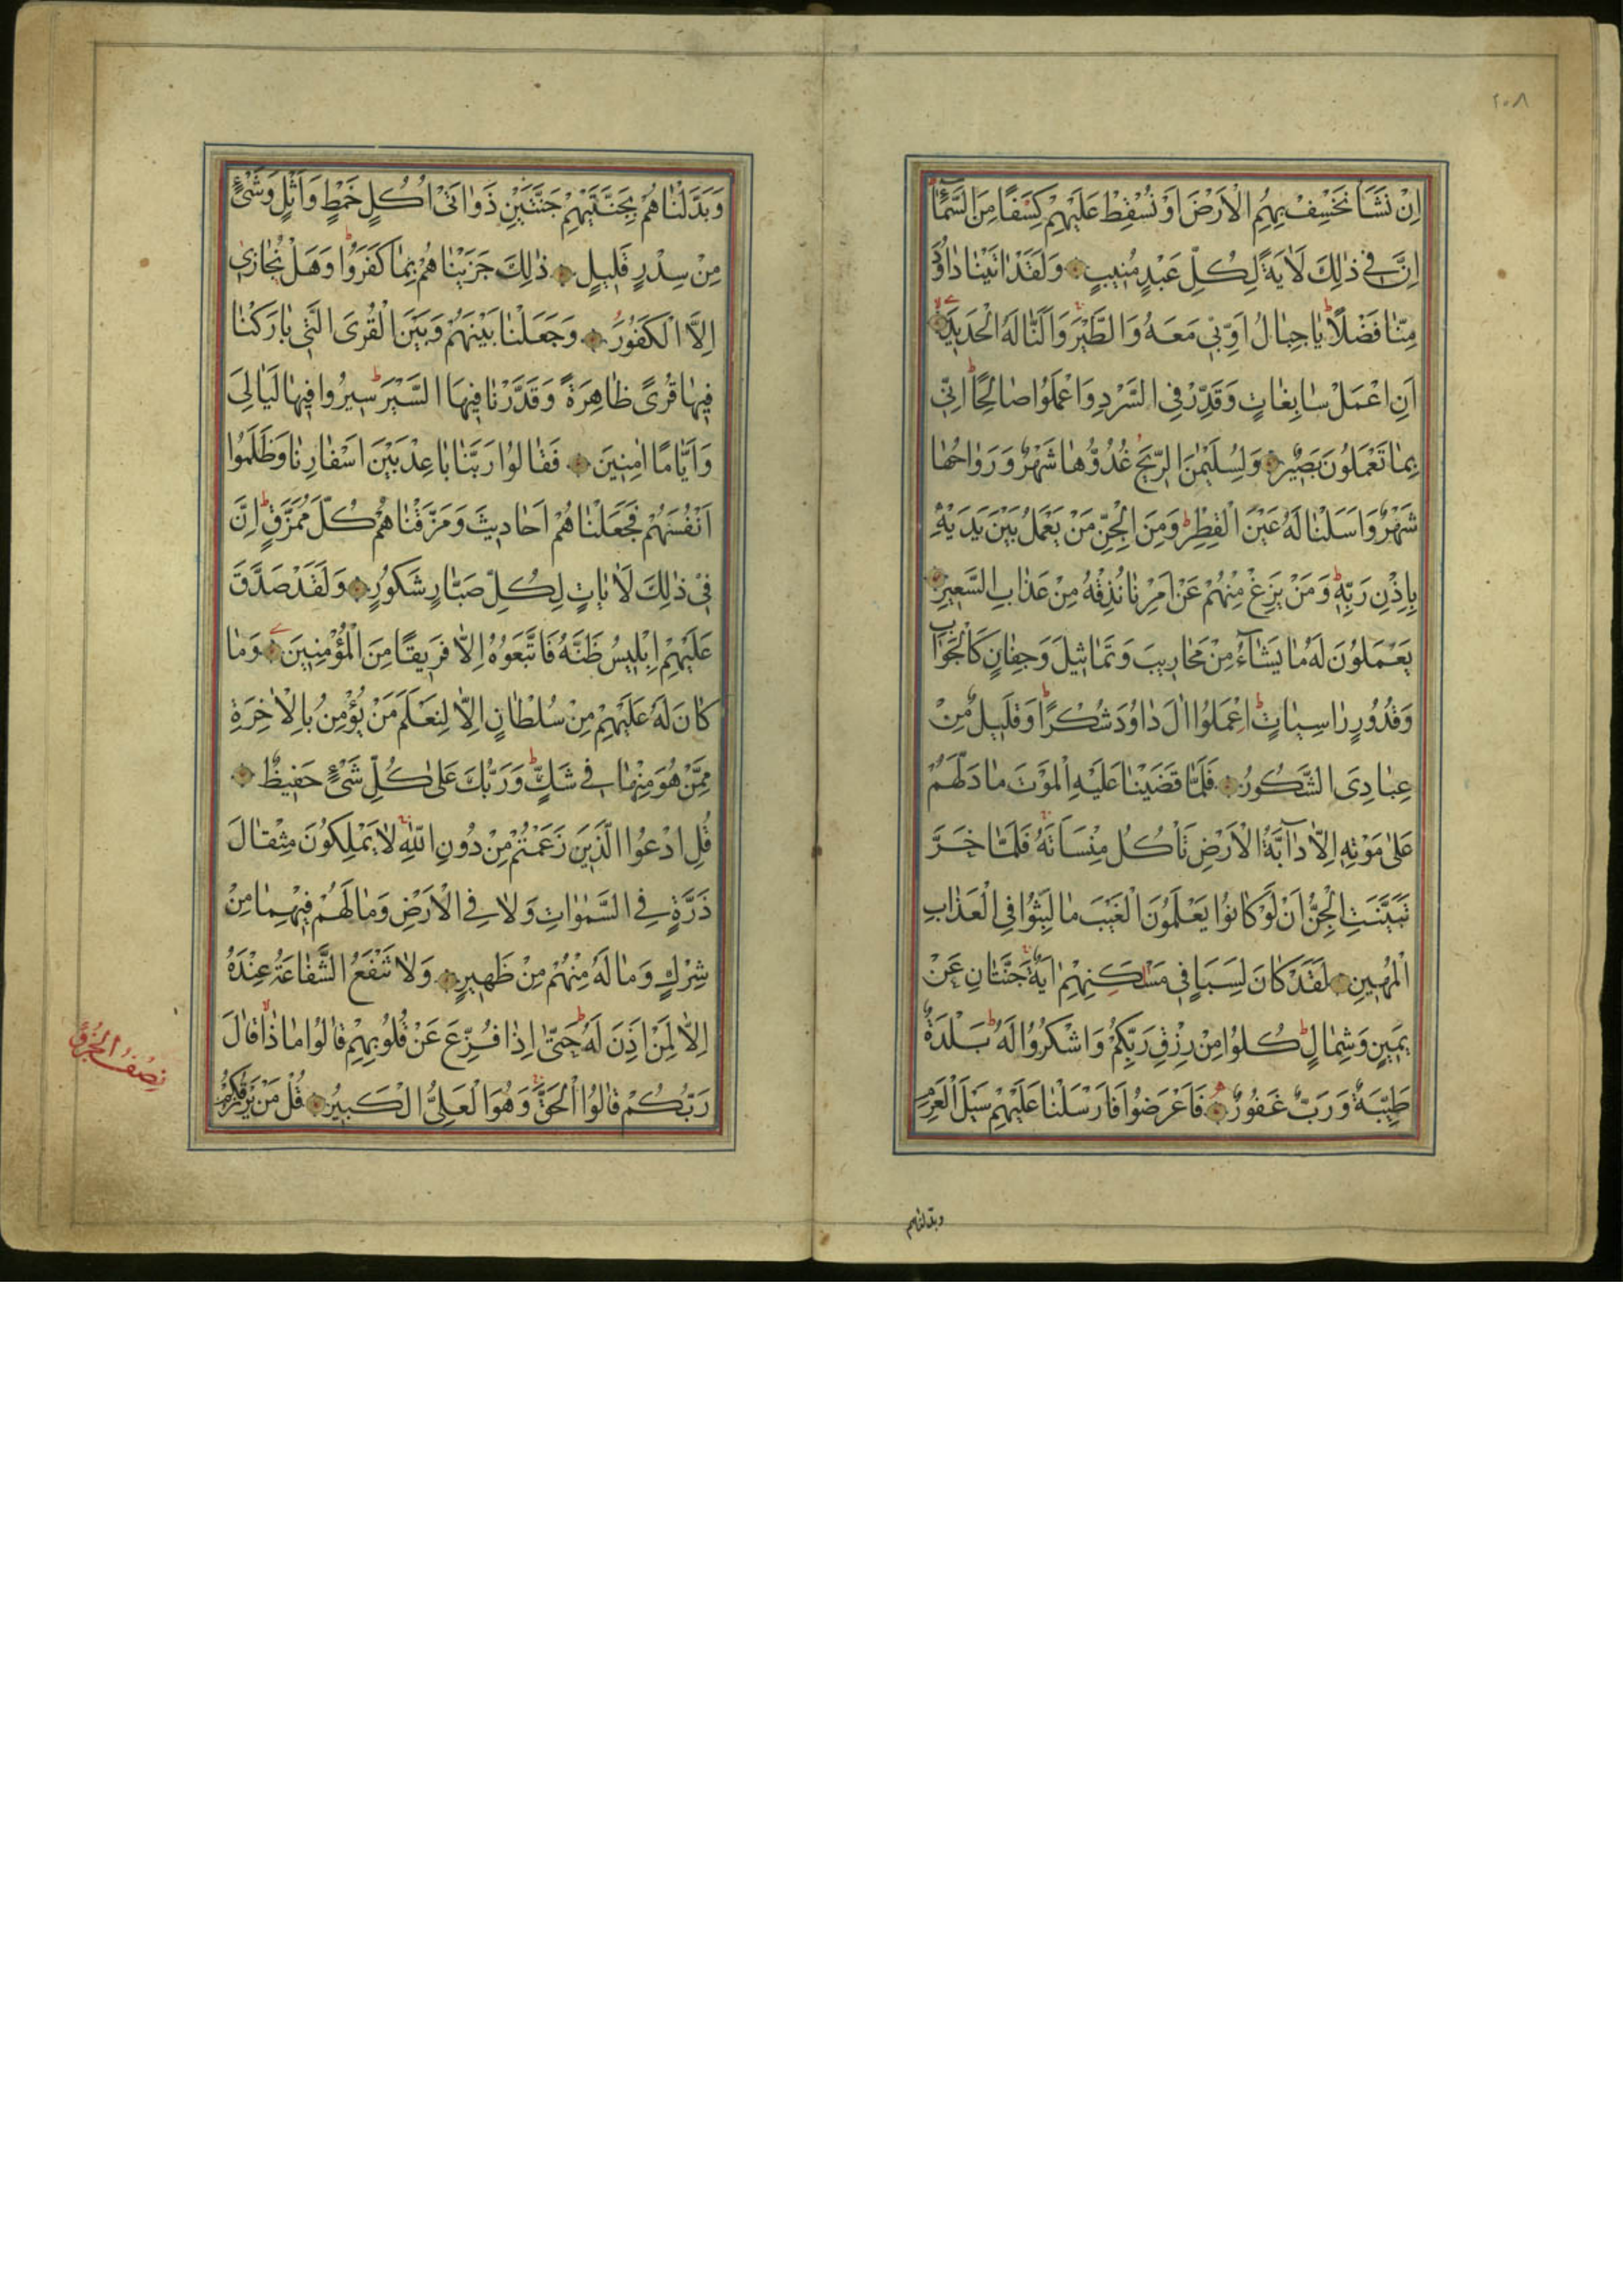 ٢٠٨
اِنْ نَشَأْ نَخْسِفْ بِهِمُ الْاَرْضَ اَوْ نُسْقِطْ عَلَيْهِمْ كِسَفًا مِنَ السَّمَآءِ
اِنَّ فِي ذٰلِكَ لَاٰيَةً لِكُلِّ عَبْدٍ مُنِيبٍ وَلَقَدْ اٰتَيْنَا دَاوُدَ
مِنَّا فَضْلًا يَا جِبَالُ اَوِّبِي مَعَهُ وَالطَّيْرَ وَاَلَنَّا لَهُ الْحَدِيدَ
اَنِ اعْمَلْ سَابِغَاتٍ وَقَدِّرْ فِي السَّرْدِ وَاعْمَلُوا صَالِحًا اِنِّي
بِمَا تَعْمَلُونَ بَصِيرٌ وَلِسُلَيْمٰنَ الرِّيحَ غُدُوُّهَا شَهْرٌ وَرَوَاحُهَا
شَهْرٌ وَاَسَلْنَا لَهُ عَيْنَ الْقِطْرِ وَمِنَ الْجِنِّ مَنْ يَعْمَلُ بَيْنَ يَدَيْهِ
بِاِذْنِ رَبِّهِ وَمَنْ يَزِغْ مِنْهُمْ عَنْ اَمْرِنَا نُذِقْهُ مِنْ عَذَابِ السَّعِيرِ
يَعْمَلُونَ لَهُ مَا يَشَآءُ مِنْ مَحَارِيبَ وَتَمَاثِيلَ وَجِفَانٍ كَالْجَوَابِ
وَقُدُورٍ رَاسِيَاتٍ اِعْمَلُوا اٰلَ دَاوُدَ شُكْرًا وَقَلِيلٌ مِنْ
عِبَادِيَ الشَّكُورُ فَلَمَّا قَضَيْنَا عَلَيْهِ الْمَوْتَ مَا دَلَّهُمْ
عَلٰى مَوْتِهِ اِلَّا دَآبَّةُ الْاَرْضِ تَأْكُلُ مِنْسَأَتَهُ فَلَمَّا خَرَّ
تَبَيَّنَتِ الْجِنُّ اَنْ لَوْ كَانُوا يَعْلَمُونَ الْغَيْبَ مَا لَبِثُوا فِي الْعَذَابِ
الْمُهِينِ لَقَدْ كَانَ لِسَبَإٍ فِي مَسْكَنِهِمْ اٰيَةٌ جَنَّتَانِ عَنْ
يَمِينٍ وَشِمَالٍ كُلُوا مِنْ رِزْقِ رَبِّكُمْ وَاشْكُرُوا لَهُ بَلْدَةٌ
طَيِّبَةٌ وَرَبٌّ غَفُورٌ فَاَعْرَضُوا فَاَرْسَلْنَا عَلَيْهِمْ سَيْلَ الْعَرِمِ
وبدلناهم
وَبَدَّلْنَاهُمْ بِجَنَّتَيْهِمْ جَنَّتَيْنِ ذَوَاتَيْ اُكُلٍ خَمْطٍ وَاَثْلٍ وَشَيْءٍ
مِنْ سِدْرٍ قَلِيلٍ ذٰلِكَ جَزَيْنَاهُمْ بِمَا كَفَرُوا وَهَلْ نُجَازِي
اِلَّا الْكَفُورَ وَجَعَلْنَا بَيْنَهُمْ وَبَيْنَ الْقُرَى الَّتِي بَارَكْنَا
فِيهَا قُرًى ظَاهِرَةً وَقَدَّرْنَا فِيهَا السَّيْرَ سِيرُوا فِيهَا لَيَالِيَ
وَاَيَّامًا اٰمِنِينَ فَقَالُوا رَبَّنَا بَاعِدْ بَيْنَ اَسْفَارِنَا وَظَلَمُوا
اَنْفُسَهُمْ فَجَعَلْنَاهُمْ اَحَادِيثَ وَمَزَّقْنَاهُمْ كُلَّ مُمَزَّقٍ اِنَّ
فِي ذٰلِكَ لَاٰيَاتٍ لِكُلِّ صَبَّارٍ شَكُورٍ وَلَقَدْ صَدَّقَ
عَلَيْهِمْ اِبْلِيسُ ظَنَّهُ فَاتَّبَعُوهُ اِلَّا فَرِيقًا مِنَ الْمُؤْمِنِينَ وَمَا
كَانَ لَهُ عَلَيْهِمْ مِنْ سُلْطَانٍ اِلَّا لِنَعْلَمَ مَنْ يُؤْمِنُ بِالْاٰخِرَةِ
مِمَّنْ هُوَ مِنْهَا فِي شَكٍّ وَرَبُّكَ عَلٰى كُلِّ شَيْءٍ حَفِيظٌ
قُلِ ادْعُوا الَّذِينَ زَعَمْتُمْ مِنْ دُونِ اللّٰهِ لَا يَمْلِكُونَ مِثْقَالَ
ذَرَّةٍ فِي السَّمٰوَاتِ وَلَا فِي الْاَرْضِ وَمَا لَهُمْ فِيهِمَا مِنْ
شِرْكٍ وَمَا لَهُ مِنْهُمْ مِنْ ظَهِيرٍ وَلَا تَنْفَعُ الشَّفَاعَةُ عِنْدَهُ
اِلَّا لِمَنْ اَذِنَ لَهُ حَتّٰى اِذَا فُزِّعَ عَنْ قُلُوبِهِمْ قَالُوا مَاذَا قَالَ
رَبُّكُمْ قَالُوا الْحَقَّ وَهُوَ الْعَلِيُّ الْكَبِيرُ قُلْ مَنْ يَرْزُقُكُمْ
نِصْفُ الْجُزْءِ